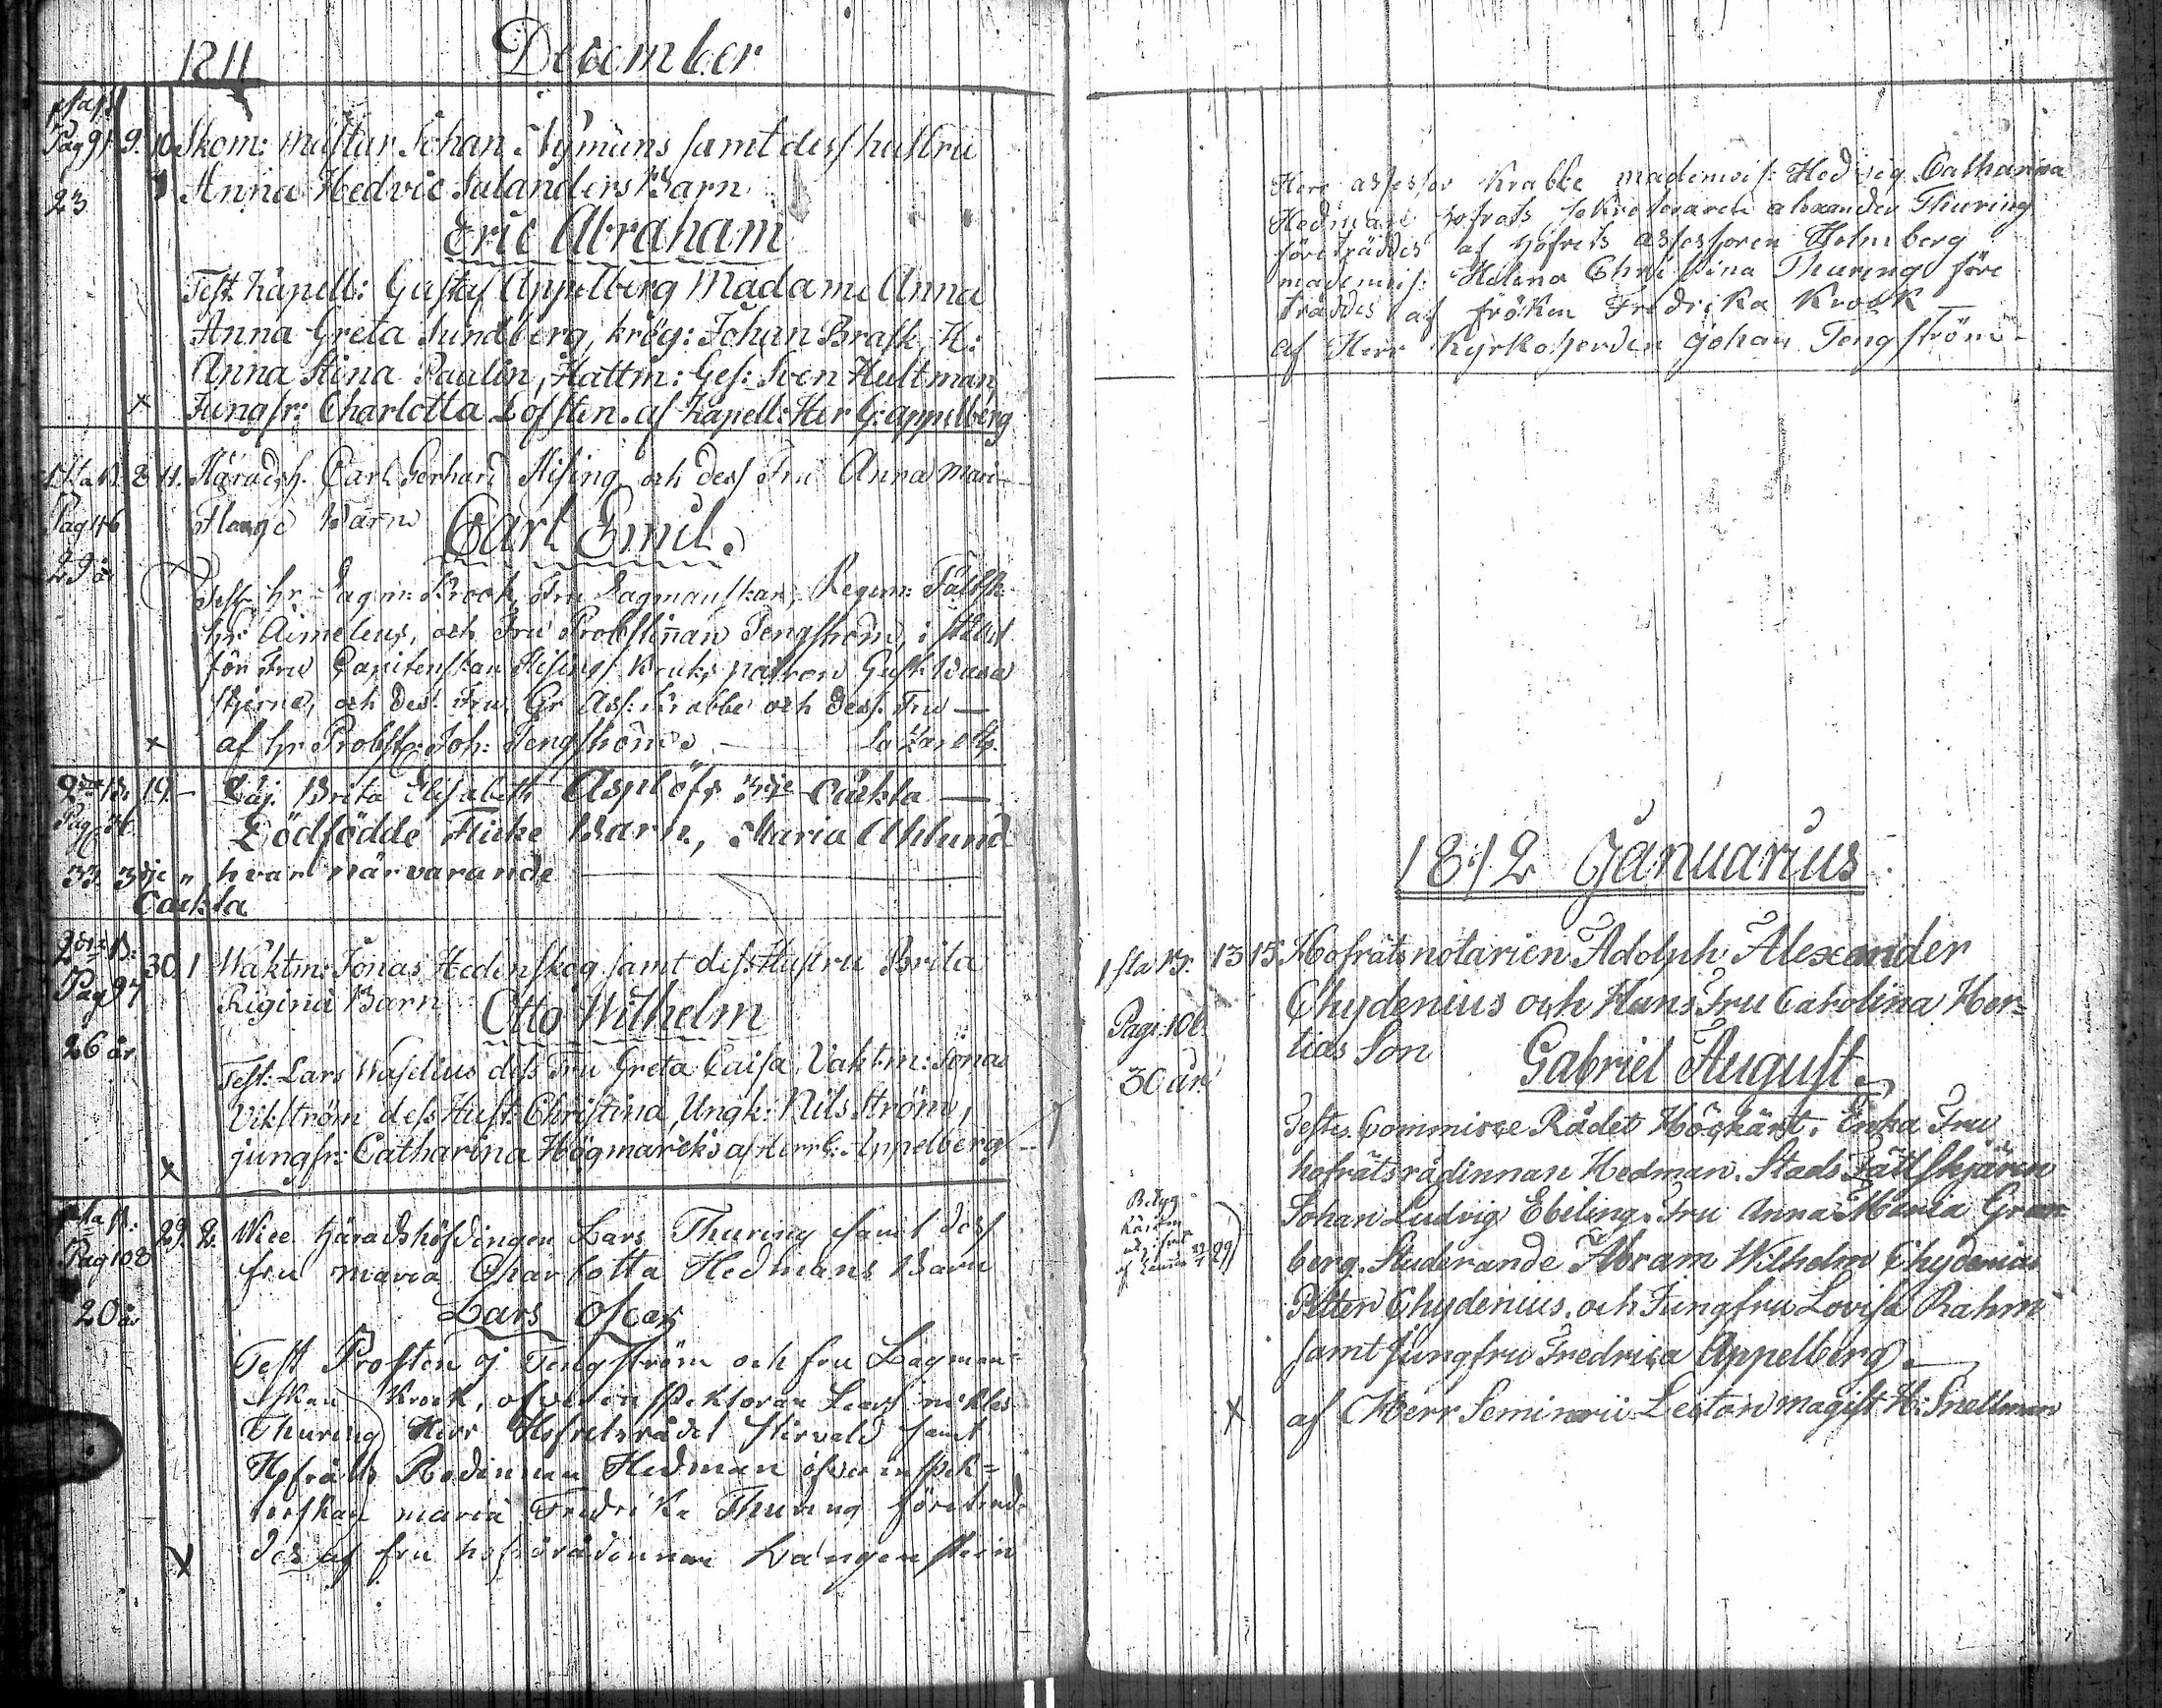 1811 December
1sta B.
Pag 91. 9. 10. Skom: mästar Johan Nymans samt dess hustru
23 Anna Hedvic Salanders Barn
Eric Abraham
Test. Kapell: Gustaf Appelberg Madame Anna
Anna Greta Sundberg, krög: Johan Brask H:
Anna Stina Paulin, Hattm: Ges: Sven Hultman,
x Jungfr: Charlotta Löfsten. af Kapell: Her G: appelberg
1sta B. 8 11. Häradsh. Carl Gerhard Hising och dess Fru Anna Mari
Pag 46 Barn
Carl Emil.
29 år
Test. hr Lagm: Krook, Fru Lagmanskan, Regem: Fältsk:
hr Aimeleus, och Fru Probstinnan Tengström, i stället
för Fru Capitenskan Hisings Bruks patron Gust: Wasa
stjerna, och dess Fru, Hr Ass: Krabbe och dess Fru —
x af hr Probst. Joh: Tengström
2dra B. 19. — Brita Elisabeth Asplöfs 3dje Oäckta —
Pag 36 Dödfödde Flicke Barn, Maria Ahlund
33. 3dje " hvar närvarande
Oäckta
2dra B. 30. 1 Waktm: Jonas Hedenskog samt dess Hustru Brita
Pag 97 Rigina Barn
Otto Wilhelm
26 år
Test: Lars Waselius dess Fru Greta Caisa, Vaktm: Jona
Vikström dess Hust: Christina, Ungk: Nils Ström,
x jungfr: Catharina Högmarcks af Herr G: Appelberg
1sta B. 29. 2. Wice Häradshöfdingen Lars Thuring samt dess
Pag 108 fru Maria Charlotta Hedmans Barn
20 år Lars Oscar
Test Prosten J Tengström och fru Lagman-
skan Krook, ofverinspektoren Lars
Thuring Herr Hofretsrådet samt
Hofrätts Rådinnan Hedman öfverinspek=
torskan maria Fredrika Thuring företräd-
x des af fru hofrådinnan Wangenstein
Herr assessor Krabbe mademois: Hedvig Catharina
Hedman hofräts sekreteraren alexander Thuring
företräddes af Hofrets assessoren Holmberg
mademois: Helena Christina Thuring före
träddes af fröken Fredrika Krook —
af Herr Kyrkoherden Johan Tengström —
1812 Januarius
1sta B. 13 15 Hofrätsnotarien Adolph Alexander
Chydenius och Hans Fru Carolina Her=
Pagi: 106. Son
Gabriel August
30 år
Testes. Commisse Rådet Enka Fru
hofrätsrådinnan Hedman. Stads Fältskjären
Johan Ludvig Ebeling. Fru Anna Maria Gran
berg. Studerande Abram Wilhelm Chydenius
Petter Chydenius, och Jungfru Lovisa Rahm
samt Jungfru Fredrica Appelberg. —
x af Herr Seminarii Lector magist H: Snellman